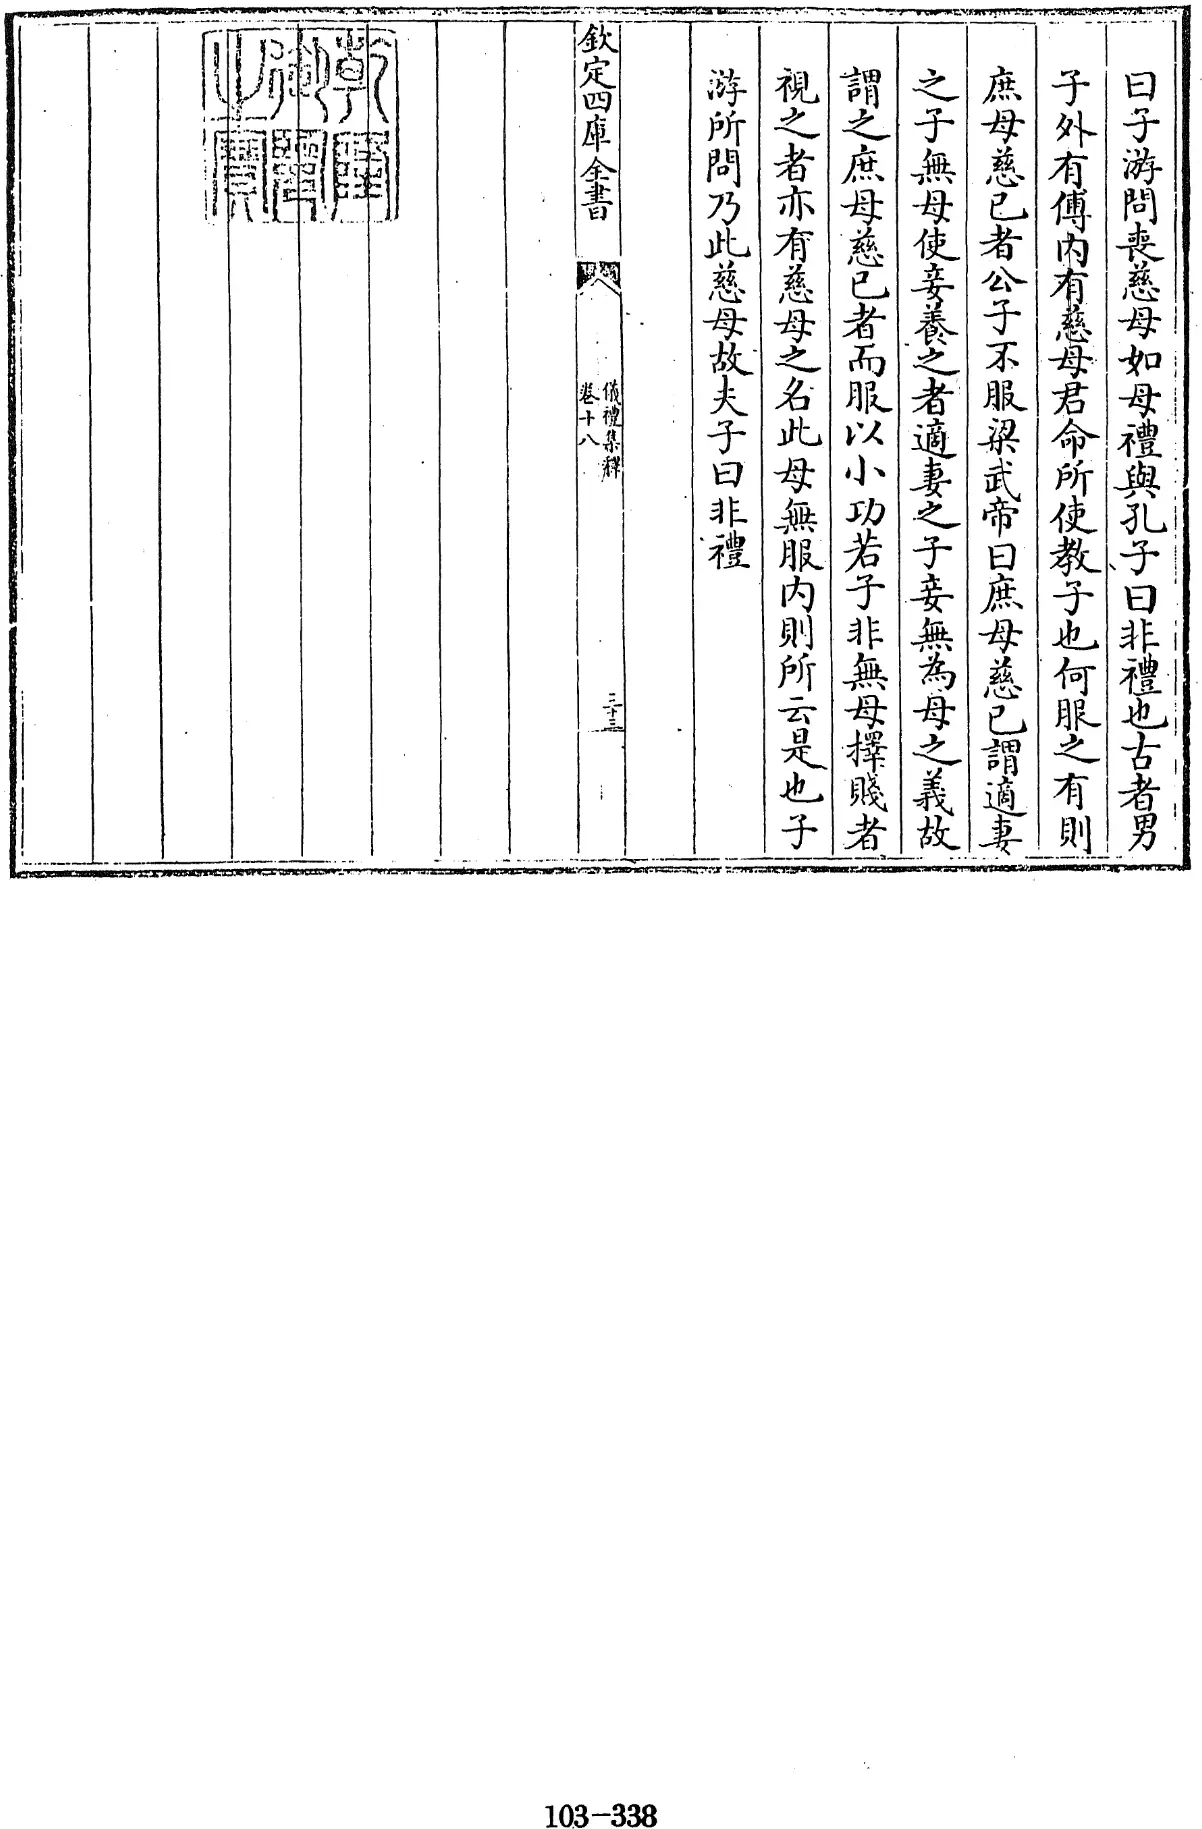 曰子游問喪慈母如母禮與孔子曰非禮也古者男
子外有傅内有慈母君命所使教子也何服之有則
庶母慈已者公子不服梁武帝曰庶母慈已謂適妻
之子無母使妾養之者適妻之子妾無為母之義故
謂之庶母慈已者而服以小功若子非無母擇賤者
視之者亦有慈母之名此母無服内則所云是也子
游所問乃此慈母故夫子曰非禮
欽定四庫全書
儀禮集釋
卷十八
三十三
乾隆御覽之寶
103-338